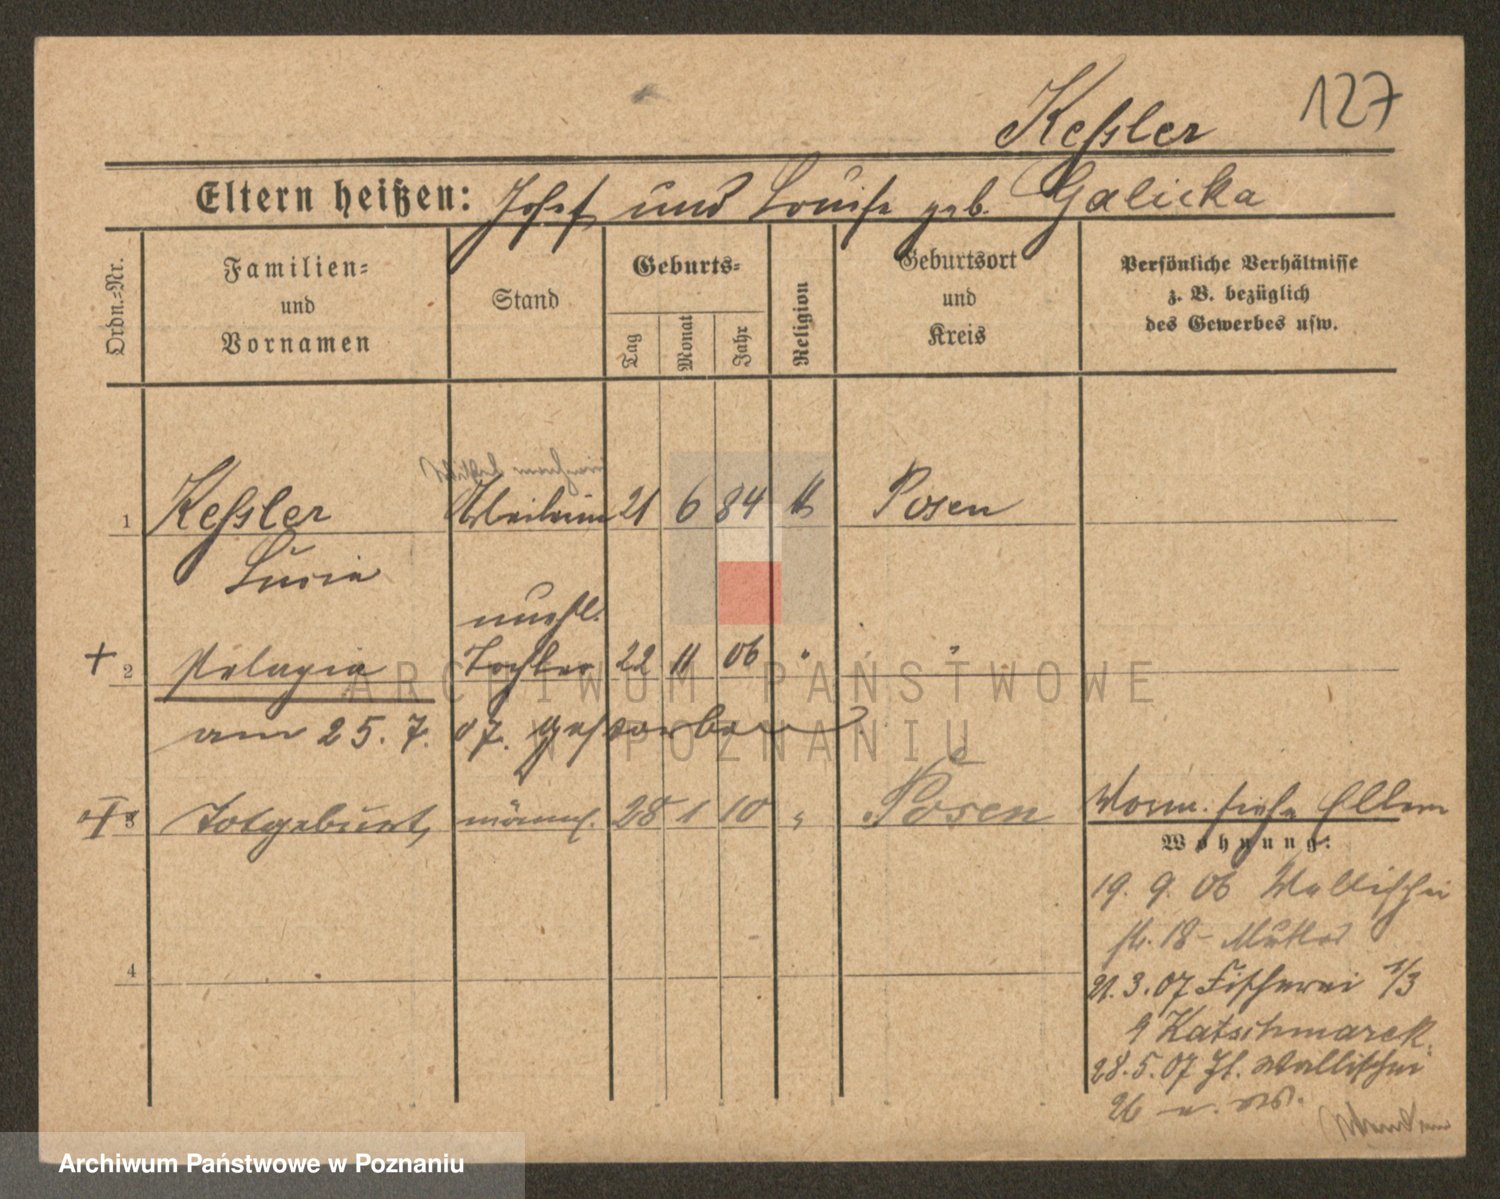 127
Keſsler
Eltern heißen: Josef und Louise geb. Galicka
Ordn.-Nr.
Familien-
und
Vornamen
Stand
Geburts-
Tag
Monat
Jahr
Religion
Geburtsort
und
Kreis
Persönliche Verhältnisse
z. B. bezüglich
des Gewerbes usw.
1 Keſsler Arbeiterin 21 6 84 Posen
Lucie
unehl.
+ 2 Pelagia Tochter 22 11 06 " "
am 25. 7. 07. gestorben
3 Totgeburt, männl. 28 1 10 " Posen
Wohn. siehe Eltern
Wohnung:
19. 9. 06 Wallischei
str. 18 - Mutter
21. 3. 07 Fischerei 1/3
Katschmarek.
28. 5. 07 Wallischei
26
4
ARCHIWUM PAŃSTWOWE
W POZNANIU
Archiwum Państwowe w Poznaniu